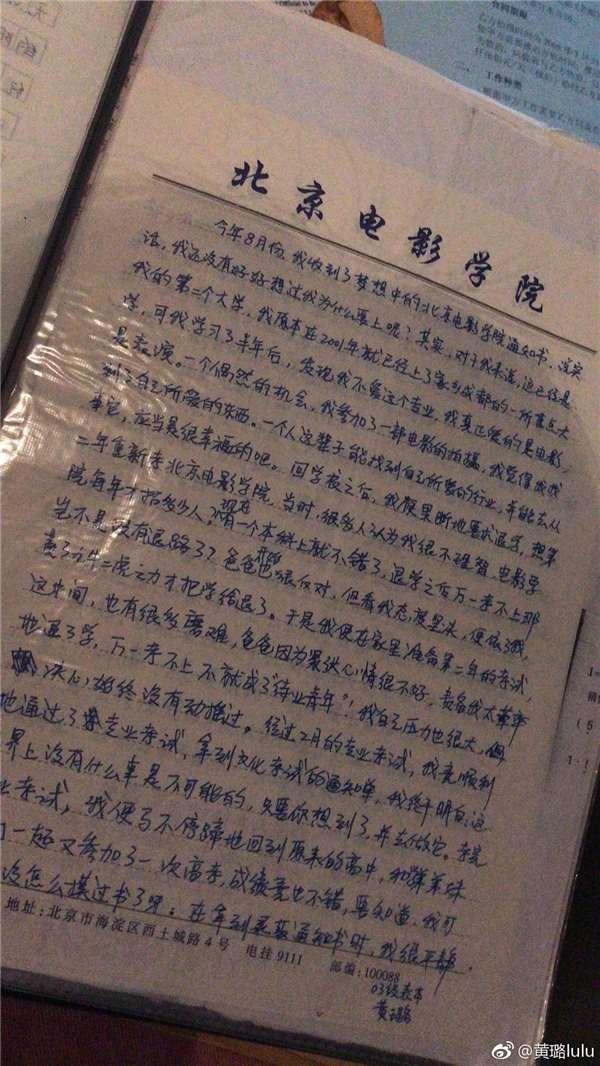 合同期限
二、工作种类
北京电影学院
今年8月份,我收到了梦想中的北京电影学院通知书,说实
话,我还没有好好想过我为什么要上呢?其实,对于我来说,这已经是
我的第二个大学,我原本在2001年就已经上了家乡成都的一所重点大
学,可我学习了半年后,发现我不爱这个专业,我真正爱的是电影,
是表演。一个偶然的机会,我参加了一部电影的拍摄,我觉得我找
到了自己所爱的东西。一个人这辈子能找到自己所爱的行业,并能去从
事它,应当是很幸福的吧。回学校之后,我便果断地要求退学,想第
二年重新考北京电影学院,当时,很多人认为我很不理智,电影学
院每年才招多少人?现在有一个本科上就不错了,退学之后万一考不上那
岂不是没有退路了?爸爸开始也很反对,但看我态度坚决,便依了我,
费了九牛二虎之力才把学给退了。于是我便在家里准备第二年的考试,
这中间,也有很多磨难,爸爸因为最状心情很不好,责备我太草率
地退了学,万一考不上不就成了"待业青年"!我自己压力也很大,但
决心始终没有动摇过。经过2月的专业考试,我竟顺利
地通过了专业考试,拿到文化考试的通知单,我终于明白,这
界上没有什么事是不可能的,只要你想到了,并去做它。考完
业考试,我便马不停蹄地回到原来的高中,和弟弟妹
们一起又参加了一次高考,成绩竟也不错,要知道,我可
没怎么摸过书了呀。在拿到录取通知书时,我很平静。
地址:北京市海淀区西土城路4号 电挂9111 邮编:100088
03级表本
黄璐
@黄璐lulu